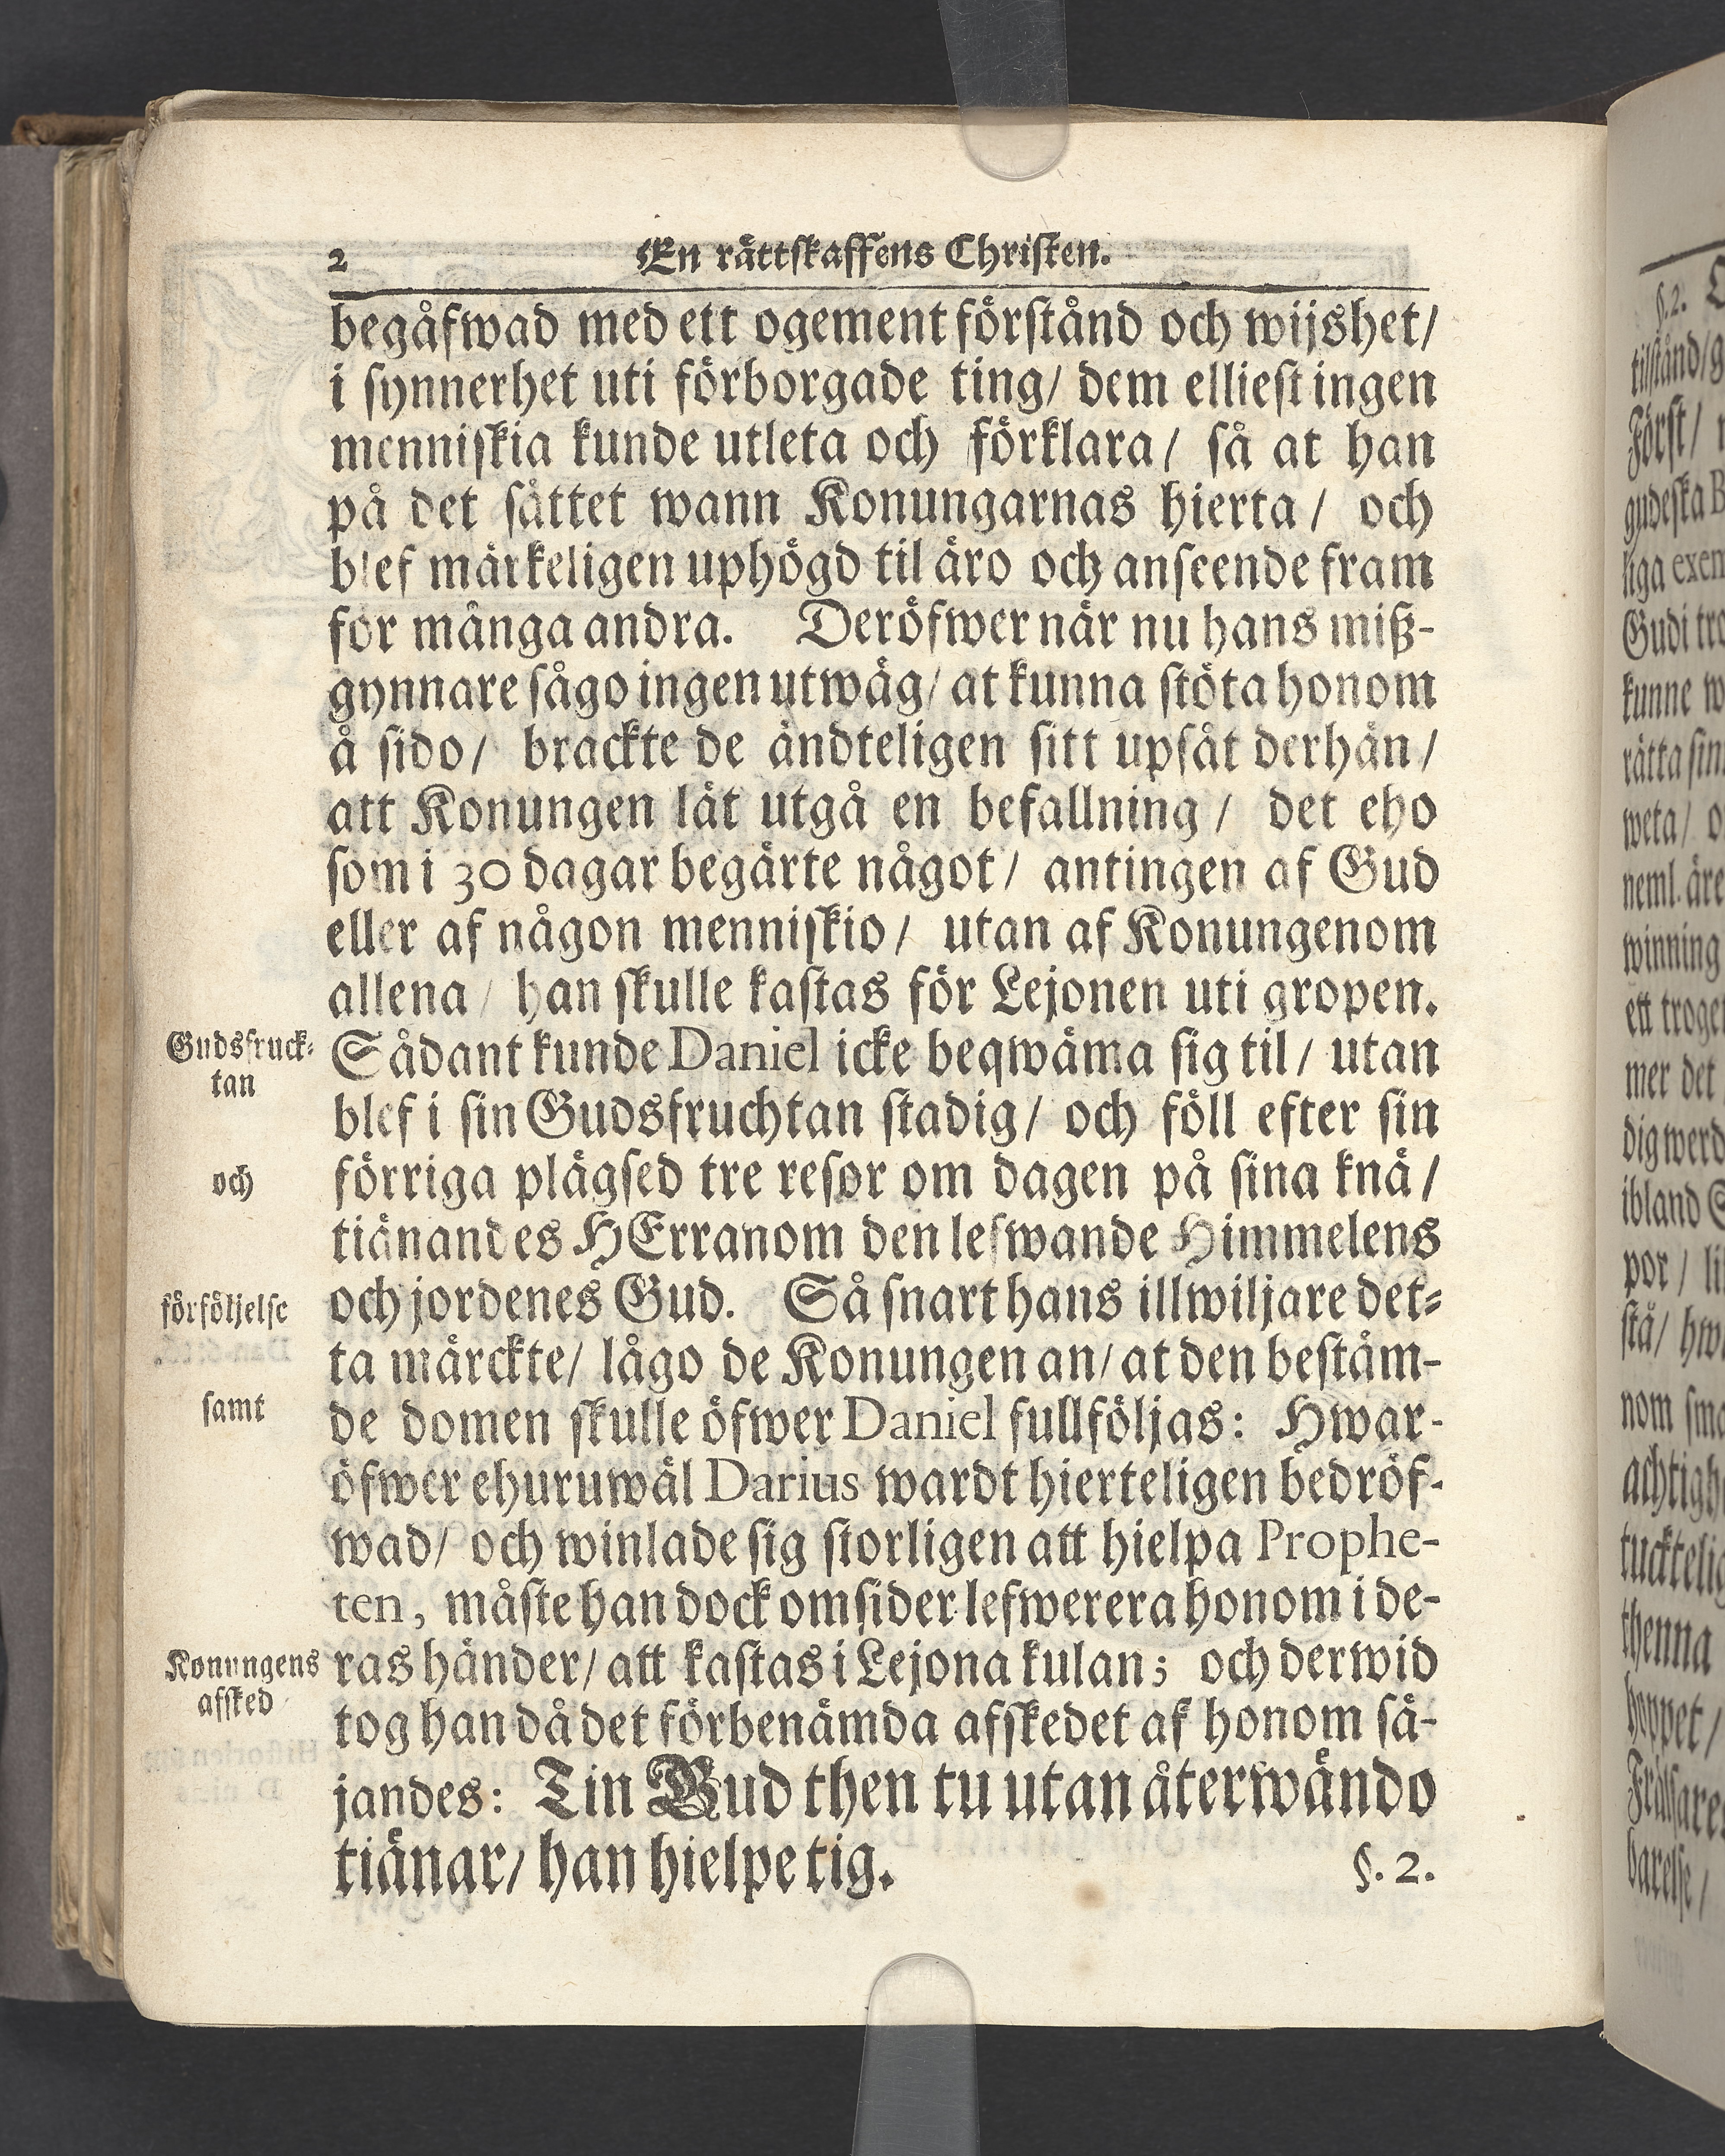 2
En rättskaffens Christen.
begåfwad med ett ogement förstånd och wijshet/
i synnerhet uti förborgade ting/ dem elliest ingen
menniskia kunde utleta och förklara/ så at han
på det sättet wann Konungarnas hierta/ och
blef märkeligen uphögd til äro och anseende fram
for många andra. Deröfwer när nu hans miß-
gynnare sågo ingen utwäg/ at kunna stöta honom
å sido/ brackte de ändteligen sitt upsåt derhän/
att Konungen lät utgå en befallning/ det eho
som i 30 dagar begärte något/ antingen af Gud
eller af någon menniskio/ utan af Konungenom
allena/ han skulle kastas för Lejonen uti gropen.
Gudsfruck-
tan
Sådant kunde Daniel icke beqwäma sig til/ utan
blef i sin Gudsfruchtan stadig/ och föll efter sin
och
förriga plägsed tre resor om dagen på sina knä/
tiänandes HErranom den lefwande Himmelens
förföljelse
och jordenes Gud. Så snart hans illwiljare det-
ta märckte/ lågo de Konungen an/ at den bestäm-
samt
de domen skulle öfwer Daniel fullföljas: Hwar-
öfwer ehuruwäl Darius wardt hierteligen bedröf-
wad/ och winlade sig storligen att hielpa Prophe-
ten, måste han dock omsider lefwerera honom i de-
Konungens
afsked
ras händer/ att kastas i Lejona kulan; och derwid
tog han då det förbenämda afskedet af honom sä-
jandes: Tin Gud then tu utan återwändo
tiänar/ han hielpe tig.
§. 2.
§. 2.
tilstånd/
Först/
gudeska
liga exem
Gudi tro
kunne
rätta sin
weta/
neml. äre
winning
ett troge
mer det
dig werd
ibland
por /
stå/
nom
achtigh
tucktelig
thenna
hoppet/
Frälsare
barelse/